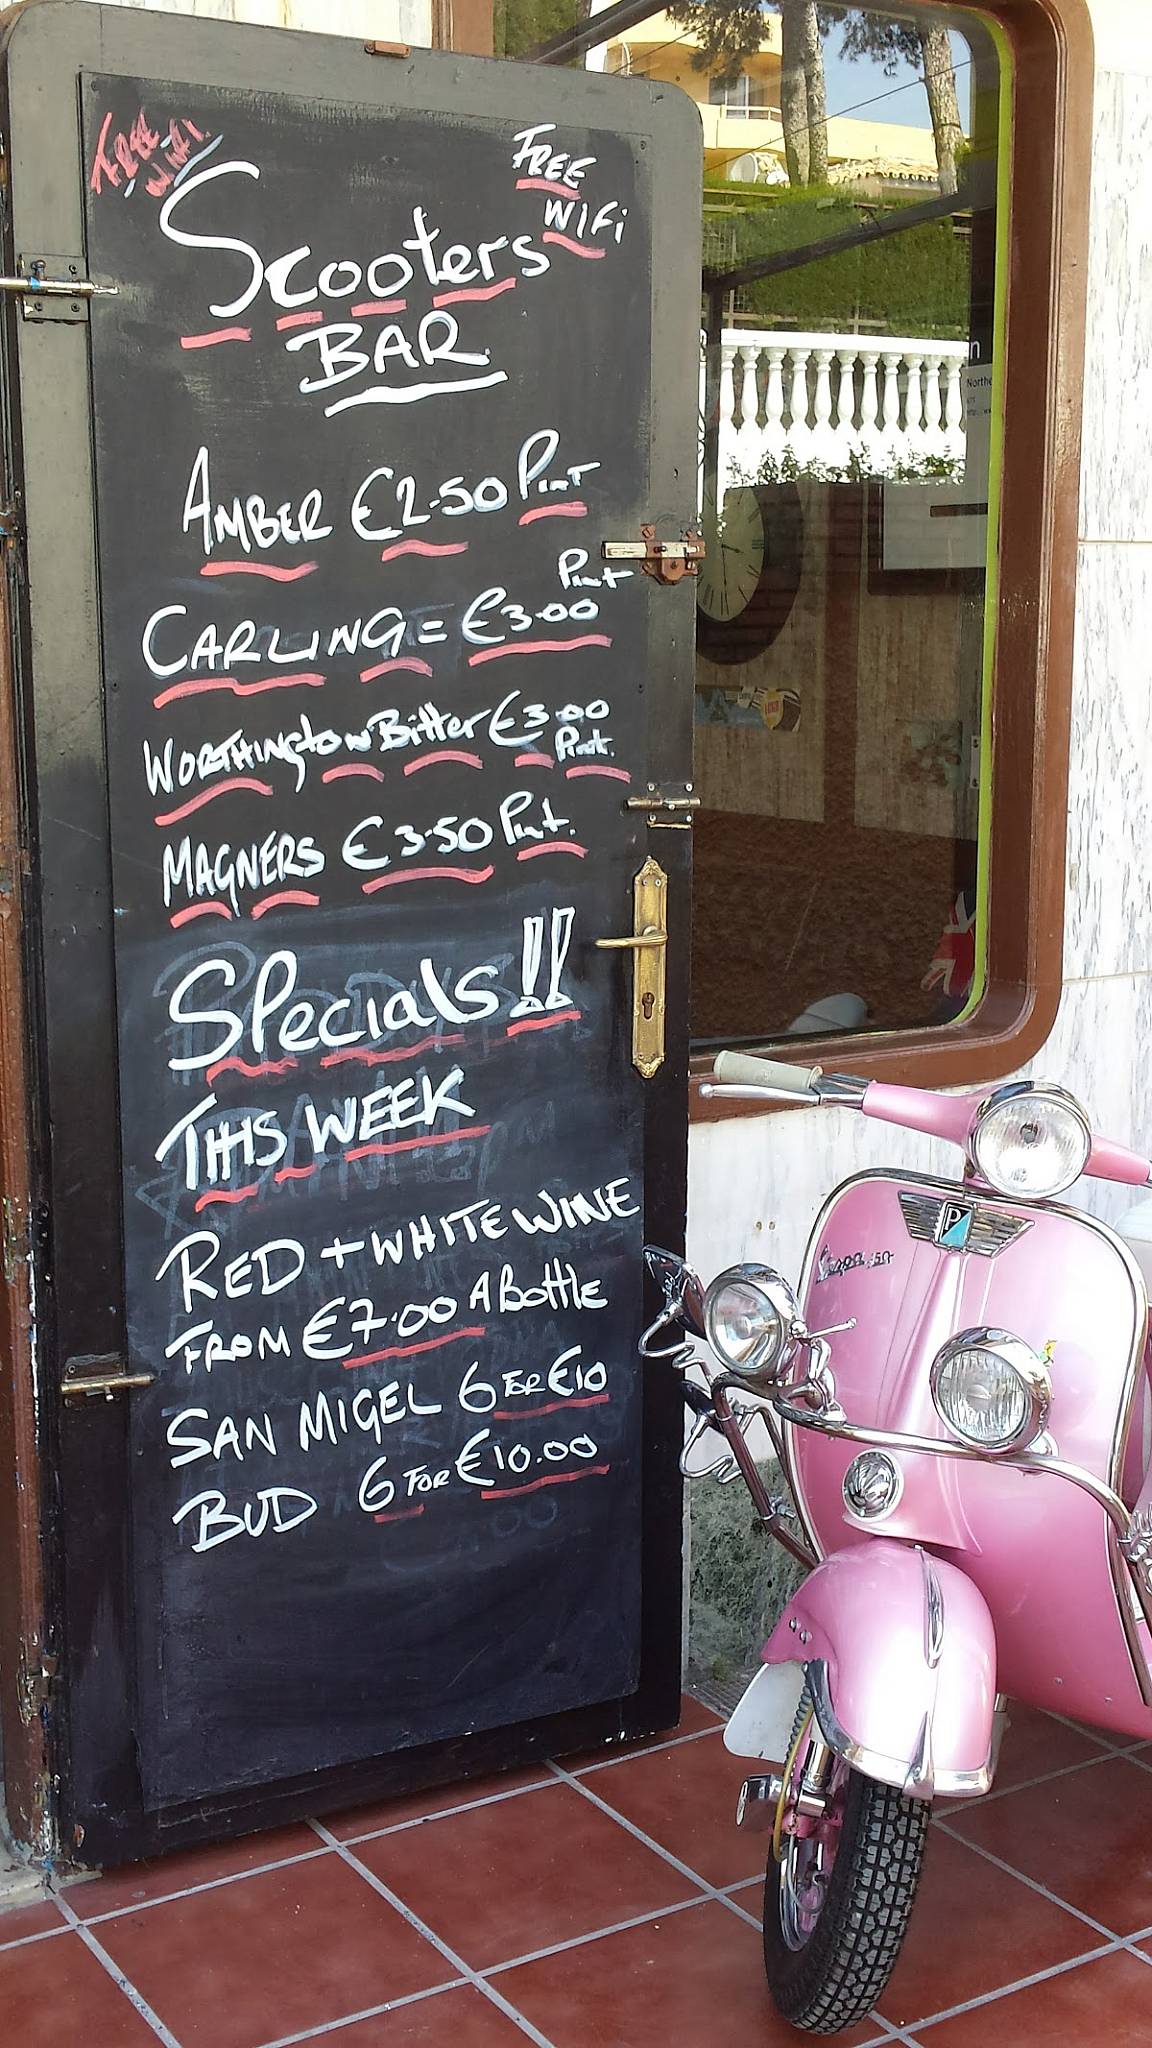 FREE
WIFI
FREE
WIFI
Scooters
BAR
AMBER €2.50 Pint
CARLING = €3.00 Pint
WORTHington Bitter €3.00
Pint.
MAGNERS €3.50 Pint.
Specials !!
THIS WEEK
RED + WHITE WINE
FROM €7.00 A Bottle
SAN MIGEL 6 FOR €10
BUD 6 FOR €10.00
Vespa 150
P